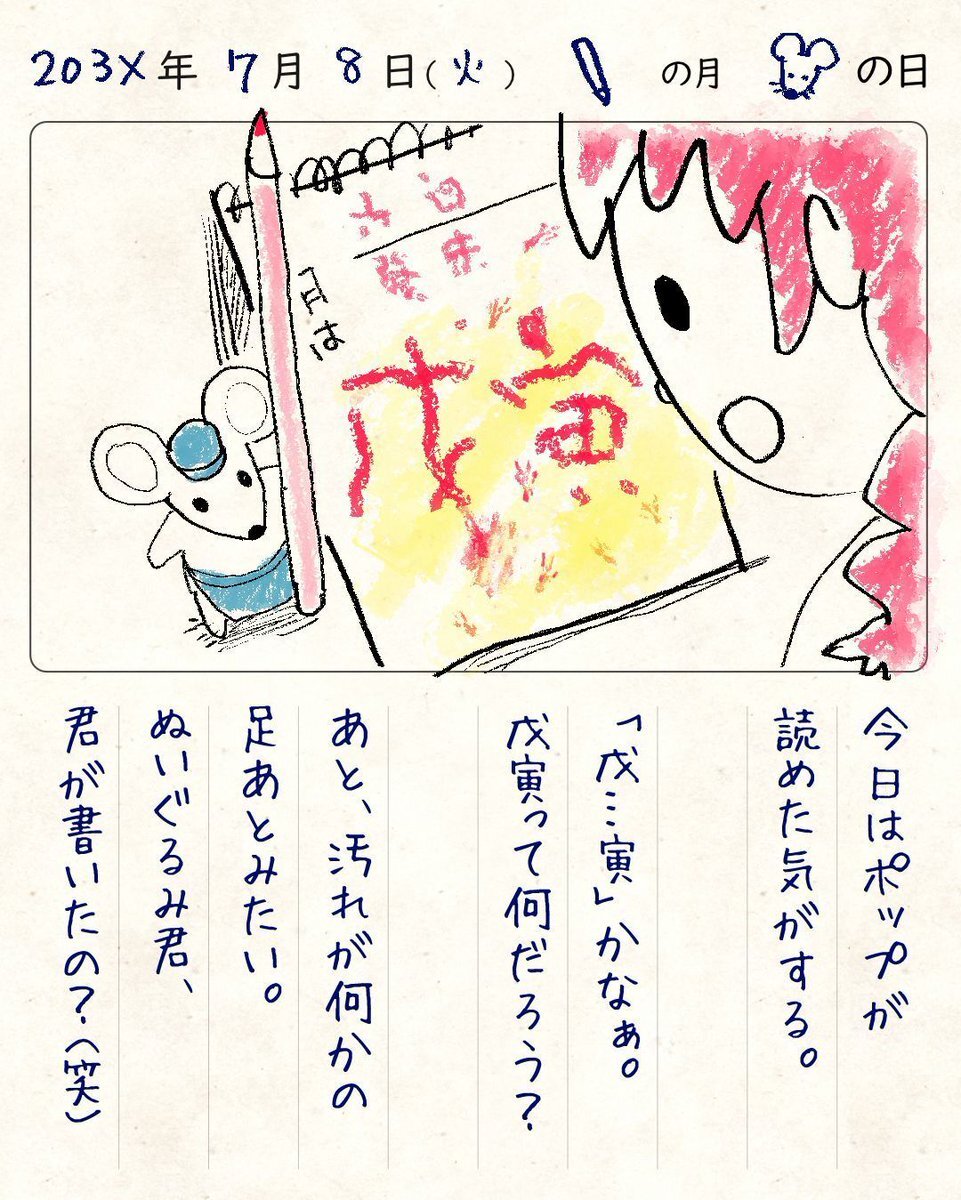 203X年 7月 8日(火) の月 の日
今日は
戊寅
今日はポップが
読めた気がする。
「戊…寅」かなぁ。
戊寅って何だろう?
あと、汚れが何かの
足あとみたい。
ぬいぐるみ君、
君が書いたの?(笑)